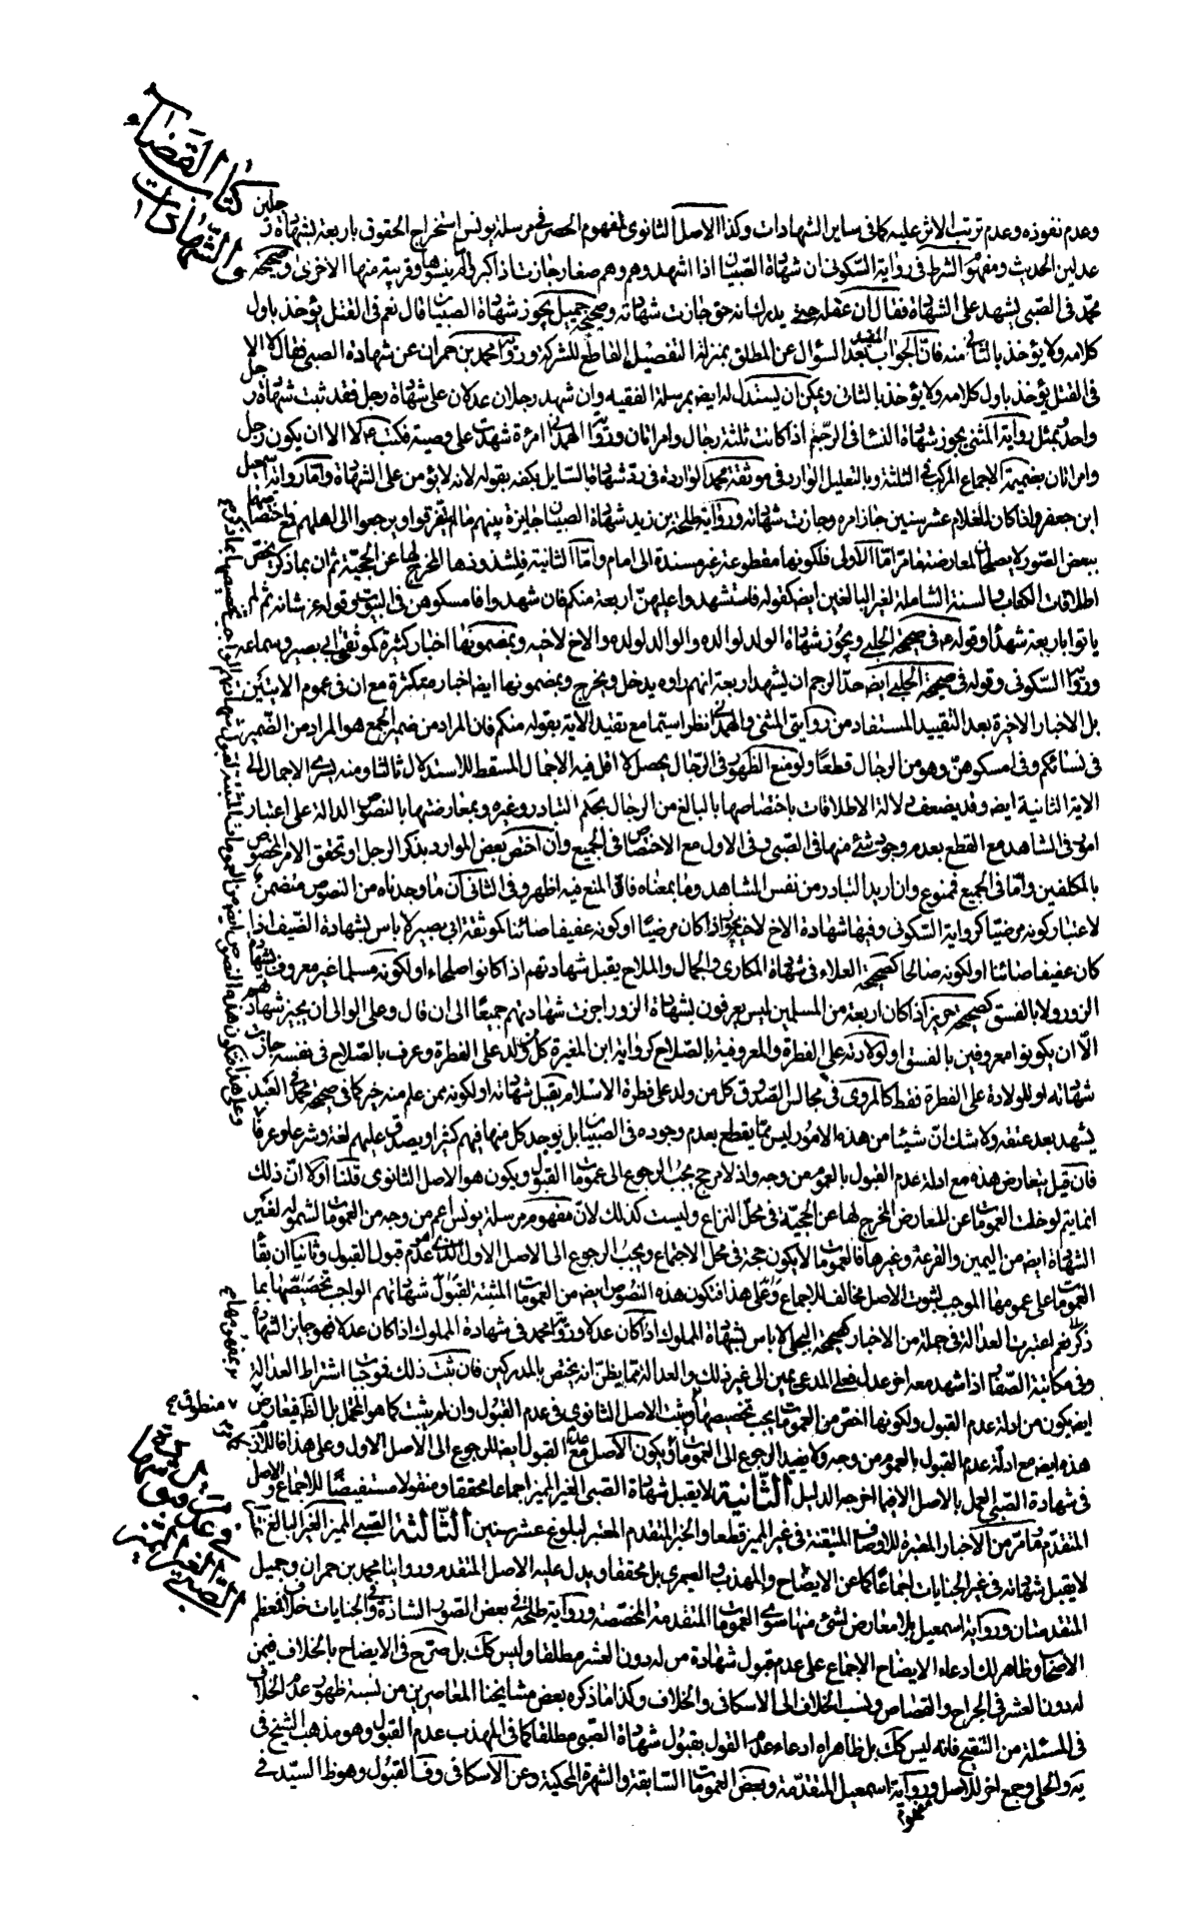 كتاب القضاء
والشهادات
وعدم نفوذه وعدم ترتب الاثر عليه كما فى ساير الشهادات وكذا الاصل الثانوى لمفهوم الحصر فى مرسلة يونس استخراج الحقوق باربعة بشهادة رجلين
عدلين الحديث ومفهوم الشرط فى رواية السكونى ان شهادة الصبيان اذا اشهدوهم وهم صغار جازت اذا كبروا ما لم ينسوها وقريبة منها الاخرى وصحيحة
محمد فى الصبى يشهد على الشهادة فقال ان عقله حين يدرك انه حق جازت شهادته وصحيحة جميل يجوز شهادة الصبيان قال نعم فى القتل يؤخذ باول
كلامه ولا يؤخذ بالثانى منه فان الجواب المقيد بعد السؤال عن المطلق بمنزلة التفصيل القاطع للشركة ورواية محمد بن حمران عن شهادة الصبى فقال لا الا
فى القتل يؤخذ باول كلامه ولا يؤخذ بالثانى ويمكن ان يستدل له ايضا بمرسلة الفقيه وان شهد رجلان عدلان على شهادة رجل فقد ثبت شهادة رجل
واحد وبمثل رواية المثنى يجوز شهادة النساء فى الرجم اذا كانت ثلثة رجال وامراتان ورواية الهمدانى امرءة شهدت على وصية فكتب ع لا الا ان يكون رجل
وامراتان بضميمة الاجماع المركب فى الثلثة وبالتعليل الوارد فى موثقة محمد الواردة فى رد شهادة السايل بكفه بقوله لانه لا يؤمن على الشهادة واما رواية اسمعيل
ابن جعفر واذا كان للغلام عشر سنين جاز امره وجازت شهادته ورواية طلحة بن زيد شهادة الصبيان جايزة بينهم ما لم يتفرقوا او يرجعوا الى اهلهم فمع اختصاصها
ببعض الصور لا يصلحان لمعارضة ما مر اما الاولى فلكونها مقطوعة غير مسندة الى امام واما الثانية فلشذوذها المخرج لها عن الحجية ثم ان بما ذكر يخص
اطلاقات الكتاب والسنة الشاملة لغير البالغين ايضا كقوله فاستشهدوا عليهن اربعة منكم فان شهدوا فامسكوهن فى البيوت وقوله عز شانه ثم لم
ياتوا باربعة شهداء وقوله ع فى صحيحة الحلبى ويجوز شهادة الولد لوالده والوالد لولده والاخ لاخيه وبمضمونها اخبار كثيرة كموثقتى ابى بصير وسماعة
ورواية السكونى وقوله فى صحيحة الحلبى ايضا حد الرجم ان يشهد اربعة انهم راوه يدخل ويخرج وبمضمونها ايضا اخبار متكثرة مع ان فى عموم الايتين
بل الاخبار الاخيرة بعد التقييد المستفاد من روايتى المثنى والهمدانى نظرا سيما مع تقييد الاية بقوله منكم فان المراد من ضمير الجمع هو المراد من الضمير
فى نسائكم وفى امسكوهن وهو من الرجال قطعا ولو منع الظهور فى الرجال يحصل لا اقل فيه الاجمال المسقط للاستدلال ثالثا ومنه يسرى الاجمال الى
الاية الثانية ايضا وقد يضعف دلالة الاطلاقات باختصاصها بالبالغ من الرجال بحكم التبادر وغيره وبمعارضتها بالنصوص الدالة على اعتبار
امور فى الشاهد مع القطع بعدم وجود شئ منها فى الصبى وفى الاول مع الاختصاص فى الجميع وان اختص بعض الموارد بذكر الرجل او تحقق الامر المخصوص
بالمكلفين واما فى الجميع فممنوع وان اريد التبادر من نفس الشاهد وما بمعناه فالمنع فيه اظهر وفى الثانى ان ما وجدناه من النصوص متضمن
لاعتبار كونه مرضيا كرواية السكونى وفيها شهادة الاخ لاخيه يجوز اذا كان مرضيا او كونه عفيفا صائنا كموثقة ابى بصير لا باس بشهادة الضيف اذا
كان عفيفا صائنا او لكونه صالحا كصحيحة العلاء فى شهادة المكارى والجمال والملاح يقبل شهادتهم اذا كانوا صلحاء او لكونه مسلما غير معروف بشهادة
الزور ولا بالفسق كصحيحة حريز اذا كان اربعة من المسلمين ليس يعرفون بشهادة الزور اجزت شهادتهم جميعا الى ان قال وعلى الوالى ان يجيز شهادتهم
الا ان يكونوا معروفين بالفسق او لولادته على الفطرة والمعروفية بالصلاح كرواية ابن المغيرة كل من ولد على الفطرة وعرف بالصلاح فى نفسه جازت
شهادته او للولادة على الفطرة فقط كالمروى فى مجالس الصدوق كل من ولد على فطرة الاسلام يقبل شهادته او لكونه ممن علم منه خير كما فى صحيحة محمد فى العبد
يشهد بعد عتقه ولا شك ان شيئا من هذه الامور ليس مما يقطع بعدم وجوده فى الصبيان بل يوجد كل منها فيهم كثيرا ويصدق عليهم لغة وشرعا وعرفا
فان قيل يتعارض هذه مع ادلة عدم القبول بالعموم من وجه واذ لا مرجح يجب الرجوع الى عمومات القبول ويكون هو الاصل الثانوى قلنا اولا ان ذلك
انما يتم لو خلت العمومات عن المعارض المخرج لها عن الحجية فى محل النزاع وليست كذلك لان مفهوم مرسلة يونس اعم من وجه من العمومات لشموله لغير
الشهادة ايضا من اليمين والقرعة وغيرها فالعمومات لا يكون حجة فى محل الاجتماع ويجب الرجوع الى الاصل الاول الذى هو عدم قبول القبول وثانيا ان بقاء
العمومات على عمومها الموجب لثبوت الاصل مخالف للاجماع وعلى هذا فتكون هذه النصوص ايضا من العمومات المثبتة لقبول شهاتهم الواجب تخصيصها بما
ذكر نعم اعتبرت العدالة فى جملة من الاخبار كصحيحة البجلى لا باس بشهادة المملوك اذا كان عدلا ورواية محمد فى شهادة المملوك اذا كان عدلا فهو جايز الشهادة
وفى مكاتبة الصفار اذا شهد معه اخر عدل فعلى المدعى يمين الى غير ذلك والعدالة مما يظن انه يختص بالمدركين فان ثبت ذلك فموجبات اشتراط العدالة
ايضا يكون من ادلة عدم القبول ولكونها اخص من العمومات يجب تخصيصها ويثبت الاصل الثانوى فى عدم القبول وان لم يثبت كما هو المحتمل بل الظاهر فيعارض
هذه ايضا مع ادلة عدم القبول بالعموم من وجه ولا يفيد الرجوع الى العمومات او يكون الاصل مع عدم القبول ايضا للرجوع الى الاصل الاول وعلى هذا فاللازم
فى شهادة الصبى العمل بالاصل الا فيما اخرجه الدليل الثانية لا يقبل شهادة الصبى الغير المميز اجماعا محققا ومنقولا مستفيضا للاجماع والاصل
المتقدم وما مر من الاخبار المعتبرة للاوصاف المتيقنة فى غير المميز قطعا والخبر المتقدم المعتبر لبلوغ عشر سنين الثالثة الصبى المميز الغير البالغ
لا يقبل شهادته فى غير الجنايات اجماعا كما عن الايضاح والمهذب والصيمرى بل محققا ويدل عليه الاصل المتقدم وروايتا محمد بن حمران وجميل
المتقدمتان ورواية اسمعيل بلا معارض لشئ منها سوى العمومات المتقدمة المخصصة ورواية طلحة فى بعض الصور الشاذة وفى الجنايات خلاف فمعظم
الاصحاب وظاهر لك ادعاء الايضاح الاجماع على عدم قبول شهادة من له دون العشر مطلقا وليس كك بل صرح فى الايضاح بالخلاف فيمن
له دون العشر فى الجراح والقصاص ونسب الخلاف الى الاسكافى والخلاف وكذا ما ذكره بعض مشايخنا المعاصرين من نسبة ظهور عدم الخلاف
فى المسئلة من التنقيح فانه ليس كك بل ظاهره ادعاء عدم القول بقبول شهادة الصبى مطلقا كما فى المهذب عدم القبول وهو مذهب الشيخ فى
يه والحلى وجمع اخر للاصل ورواية اسمعيل المتقدمة وبعض العمومات السابقة والشهرة المحكية وعن الاسكافى وف القبول وهو ظ السيد فى
الصبى الغير المميز